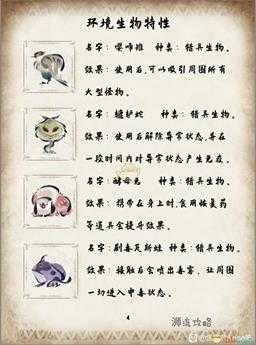 环境生物特性
名字： 种类：猎具生物。
效果：使用后，可以吸引周围所有
大型怪物。
名字： 种类：猎具生物。
效果：使用后解除异常状态，并在
一段时间内对异常状态产生免疫。
名字：酵母兔 种类：猎具生物。
效果：携带在身上时，食用恢复药
等道具会提升效果。
名字：剧毒瓦斯蛙 种类：猎具生物。
效果：接触后会喷出毒雾，让周围
一切进入中毒状态。
4
攻略